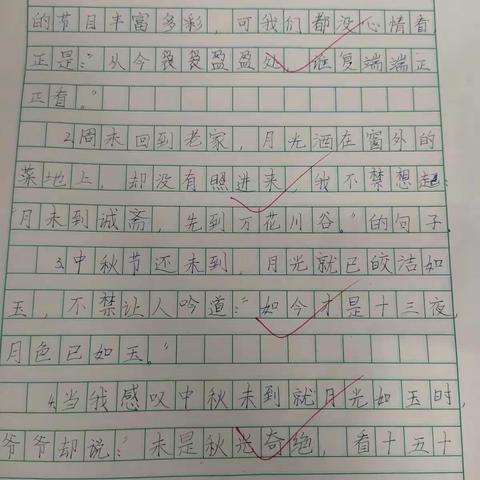 的节目丰富多彩，可我们都没心情看，
正是："从今袅袅盈盈处，谁复端端正
正看。"
2.周末回到老家，月光洒在窗外的
菜地上，却没有照进来，我不禁想起：
"月未到诚斋，先到万花川谷。"的句子。
3.中秋节还未到，月光就已皎洁如
玉，不禁让人吟道："如今才是十三夜，
月色已如玉。"
4.当我感叹中秋未到就月光如玉时，
爷爷却说："未是秋光奇绝，看十五十